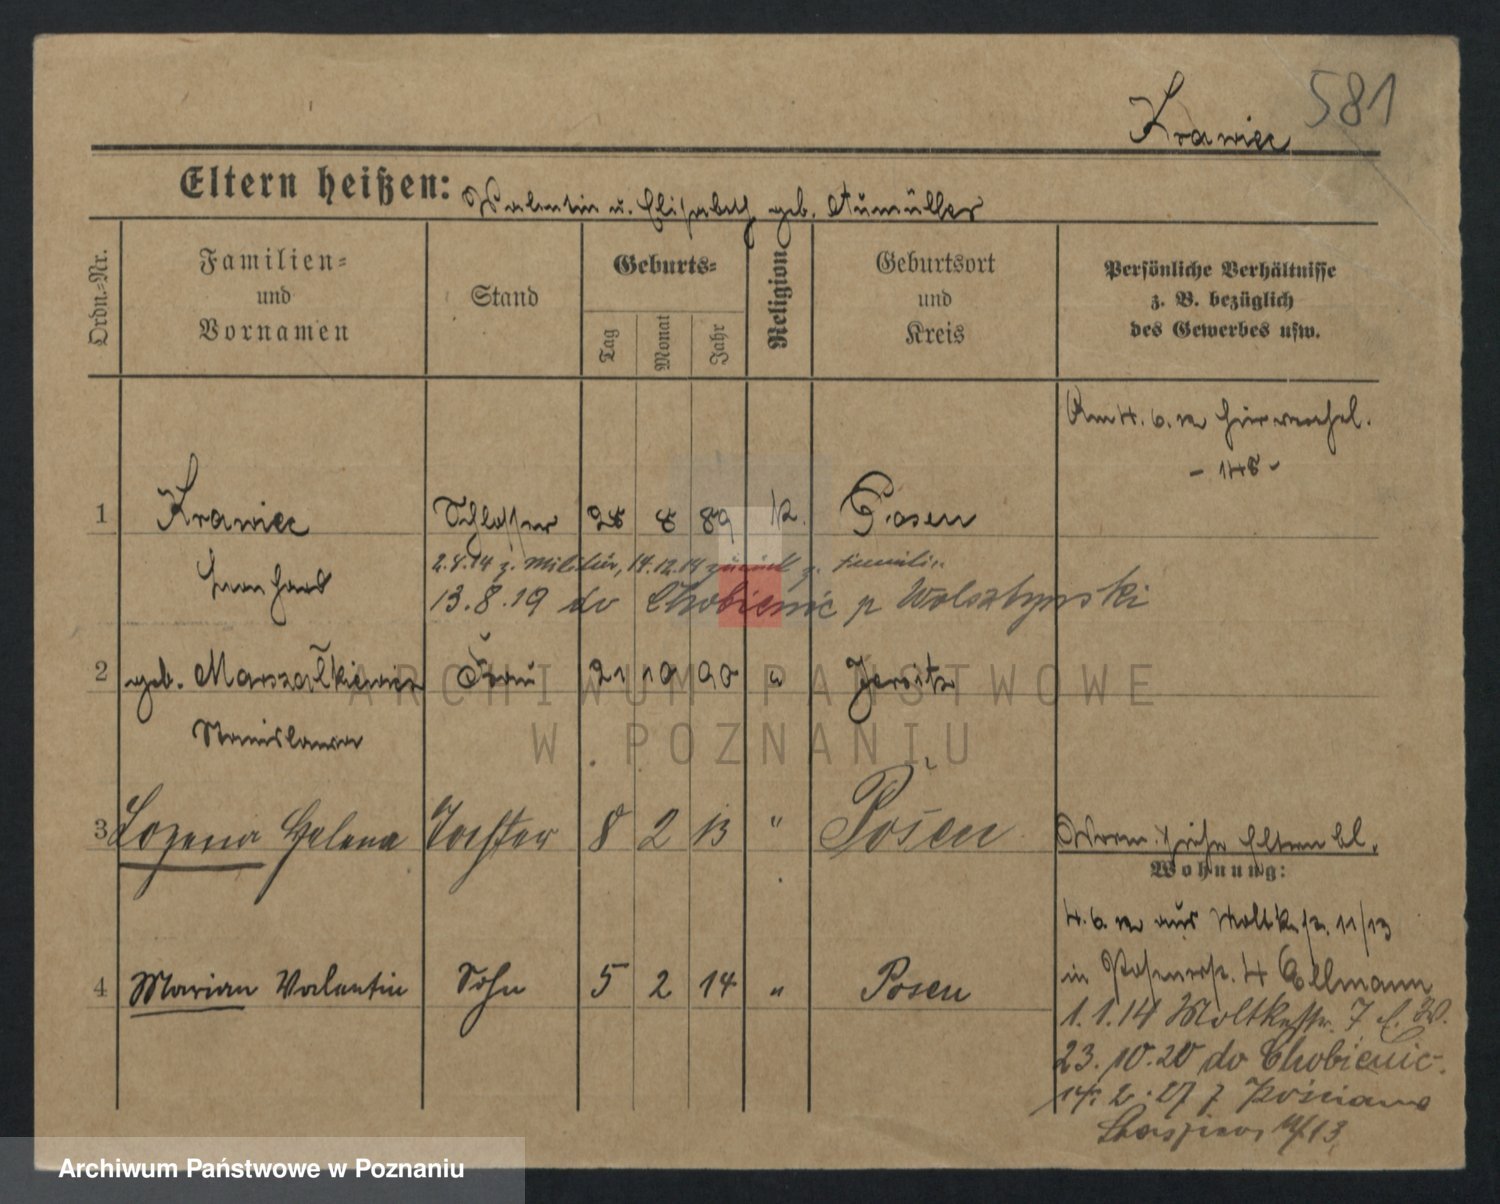 581
Krawiec
Eltern heißen: Valentin u. Elisabeth geb. Aumüller
Ordn.-Nr.
Familien-
und
Vornamen
Stand
Geburts-
Tag
Monat
Jahr
Religion
Geburtsort
und
Kreis
Persönliche Verhältnisse
z. B. bezüglich
des Gewerbes usw.
Am 4. 6. 12
- 148 -
1 Krawiec Schlosser 8 89 k. Posen
2.8.14 z. Militär, 14.12.14 zurück z. Familie
13.8.19 do Chobienic p Wolsztyński
2 geb. Marszałkiewicz Frau 21 10 90 " Jersitz
Stanislawa
3 Helena Tochter 8 2 13 " Posen
siehe Eltern bl.
Wohnung:
4. 6. 12 aus Moltkestr. 11/13
4 Marian Valentin Sohn 5 2 14 " Posen
in Posenerstr. 4
1.1.14 Moltkestr. 7
23.10.20 do Chobienic
14. 2. 27 z
13
ARCHIWUM PAŃSTWOWE
W POZNANIU
Archiwum Państwowe w Poznaniu